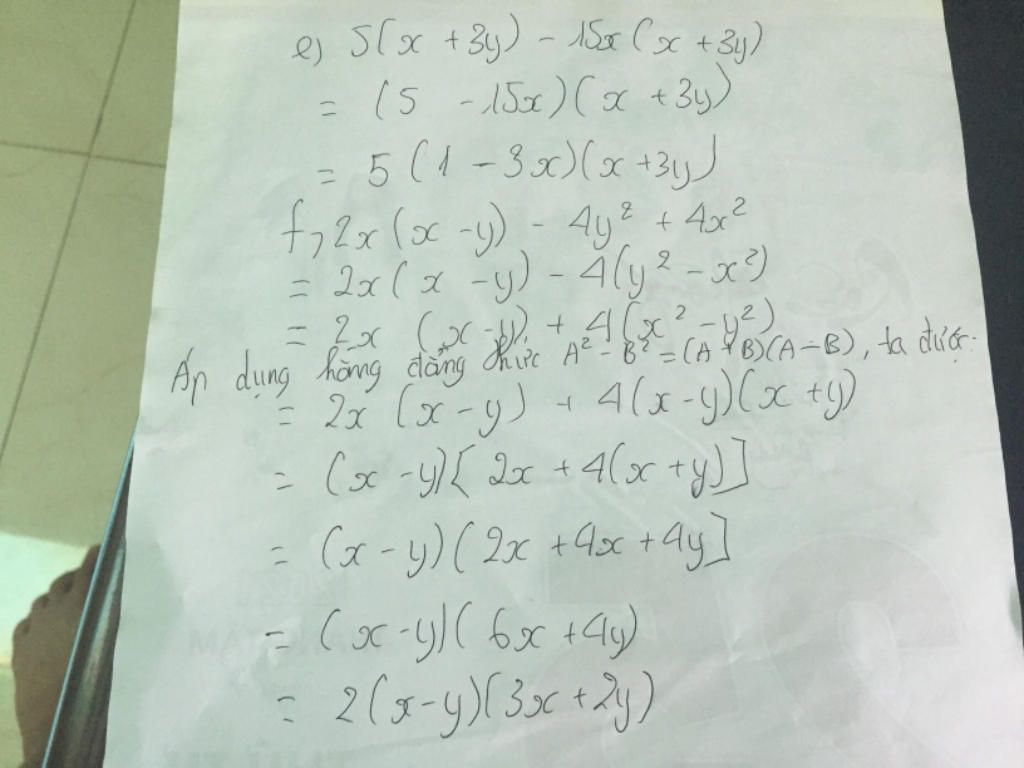 e) 5(x + 3y) - 15x(x + 3y)
= (5 - 15x)(x + 3y)
= 5(1 - 3x)(x + 3y)
f, 2x(x - y) - 4y² + 4x²
= 2x(x - y) - 4(y² - x²)
= 2x (x - y) + 4(x² - y²)
Áp dụng hằng đẳng thức A² - B² = (A + B)(A - B), ta được:
= 2x (x - y) + 4(x - y)(x + y)
= (x - y)[2x + 4(x + y)]
= (x - y)(2x + 4x + 4y]
= (x - y)(6x + 4y)
= 2(x - y)(3x + 2y)